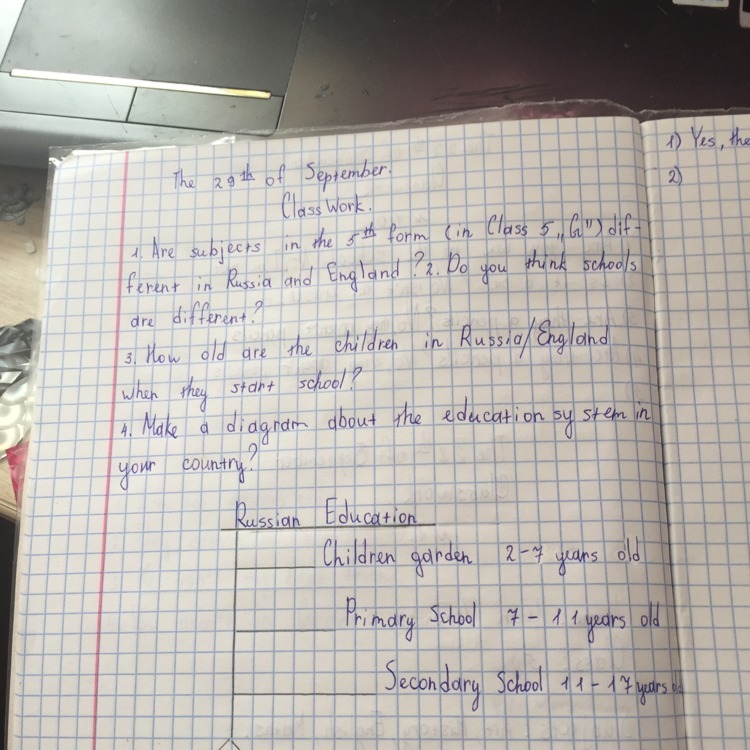 The 29th of September.
Class Work.
1. Are subjects in the 5th form (in Class 5 „G") dif-
ferent in Russia and England? 2. Do you think schools
are different?
3. How old are the children in Russia/England
when they start school?
4. Make a diagram about the education system in
your country?
Russian Education
Children garden 2-7 years old
Primary School 7 - 11 years old
Secondary School 11-17 years
1) Yes, the
2)